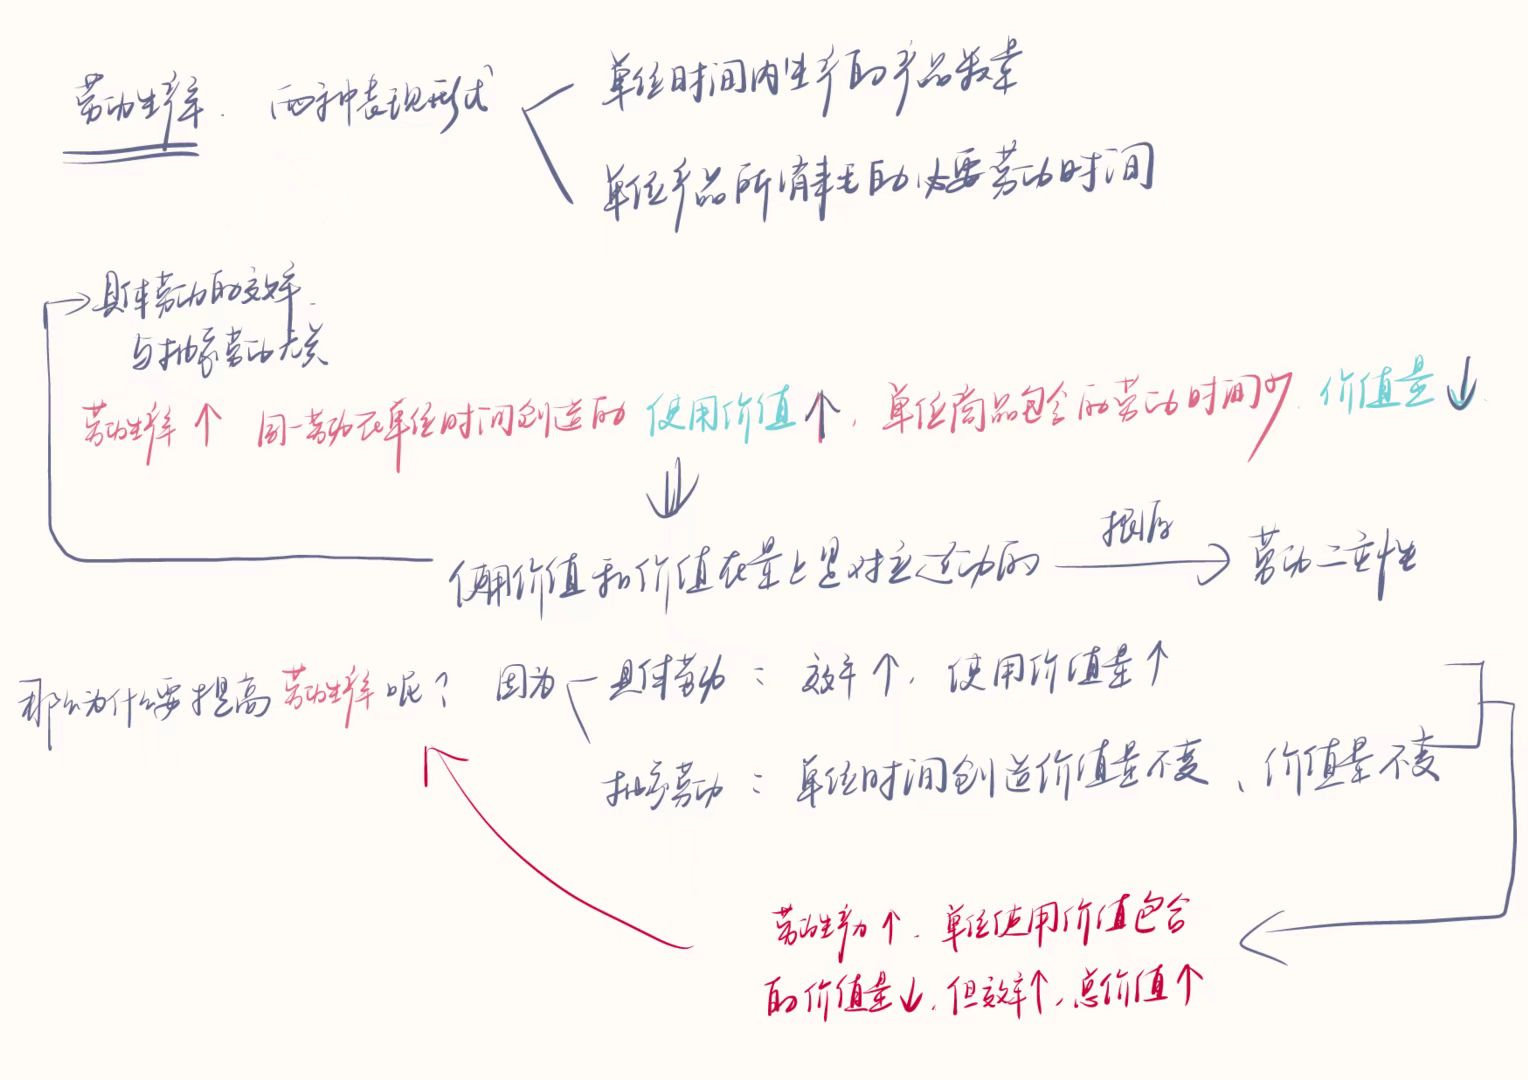 劳动生产率. 两种表现形式
单位时间内生产的产品数量
单位产品所消耗的必要劳动时间
具体劳动的效率.
与抽象劳动无关
劳动生产率↑ 同一劳动在单位时间创造的 使用价值↑, 单位商品包含的劳动时间少. 价值量↓.
使用价值和价值在量上是对应运动的 根源 劳动二重性
那么为什么要提高劳动生产率呢? 因为
具体劳动: 效率↑, 使用价值量↑
抽象劳动: 单位时间创造价值量不变、价值量不变
劳动生产力↑. 单位使用价值包含
的价值量↓, 但效率↑, 总价值↑